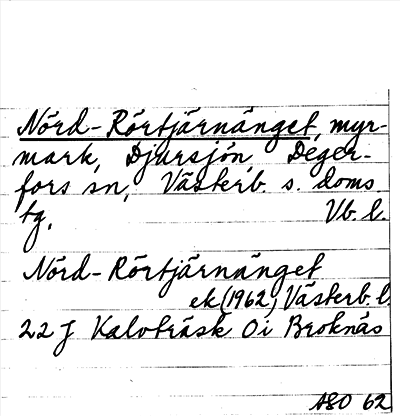 Nörd-Rörtjärnänget, myr-
mark, Djursjön, Deger-
fors sn, Västerb. s. doms.
tg. Vb. l.
Nörd-Rörtjärnänget
ek (1962, Västerb. l.
22 J Kalvträsk 0i Broknäs
ASO 62